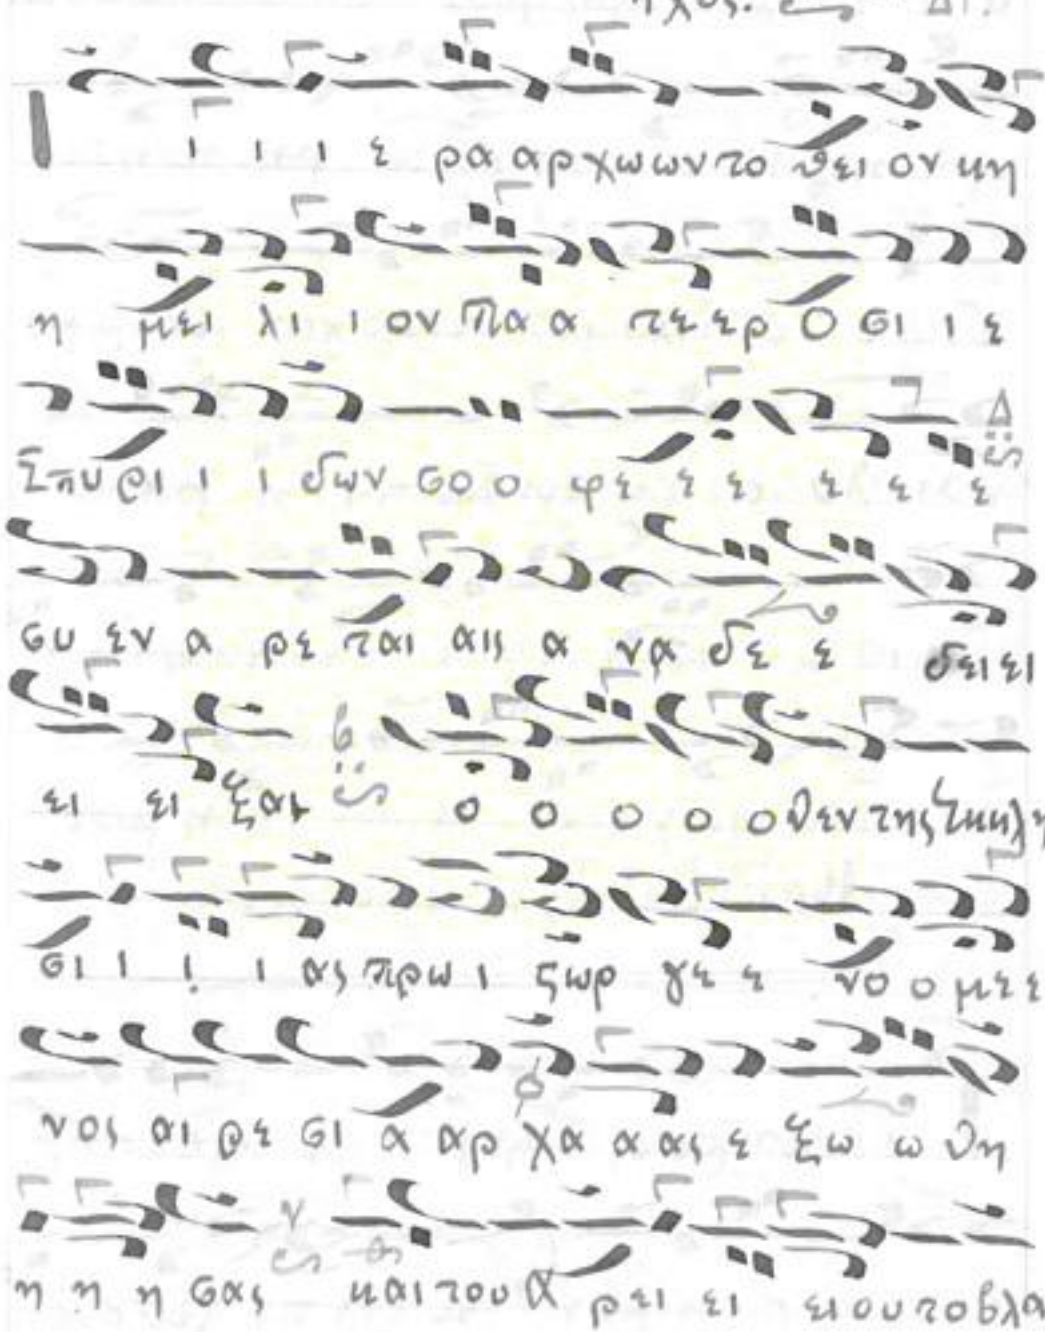 ηχος. Δι
Ι ι ι ι ε ρα αρ χω ων το θει ον κη
η μει λι ι ον Πα α τε ερ Ο σι ι ε
Σπυ ρι ι ι δων σο ο φε ε ε ε ε ε Δ
συ εν α ρε ται αις α να δε ε δει ει
ει ει ξαι β ο ο ο ο ο θεν της Εκκλη
σι ι ι ι ας πρω ι ζωρ γε ε νο ο με ε
νος αι ρε σι α αρ χα α ας ε ξω ω θη
η η η σας ν και του Α ρει ει ει ου το βλα